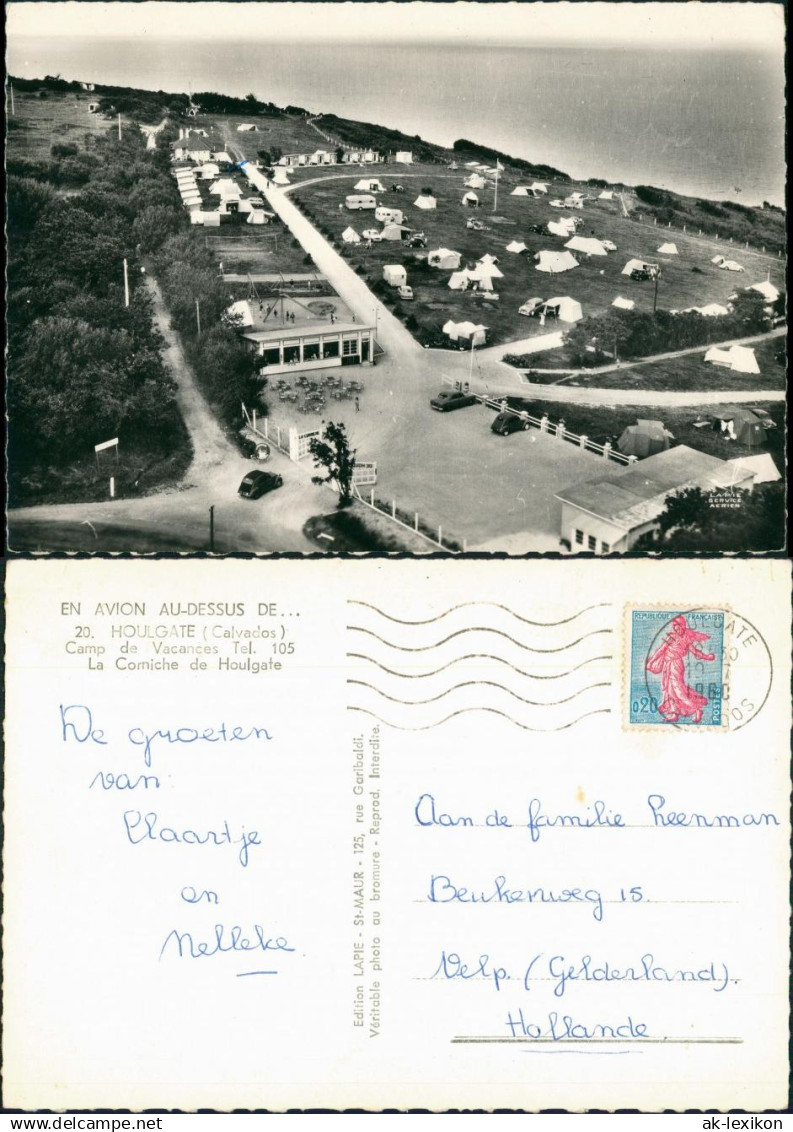 LAPIE
SERVICE
AERIEN
EN AVION AU-DESSUS DE...
20. HOULGATE (Calvados)
Camp de Vacances Tel. 105
La Corniche de Houlgate
De groeten
van:
Klaartje
en
Nelleke
Edition LAPIE - St-MAUR - 125, rue Garibaldi.
Véritable photo au bromure - Reprod. Interdite.
REPUBLIQUE FRANÇAISE
0,20
POSTES
HOULGATE
1960
Aan de familie Leenman
Beukenweg 15.
Velp. (Gelderland)
Hollande
ak-lexikon
© ak-lexikon.com